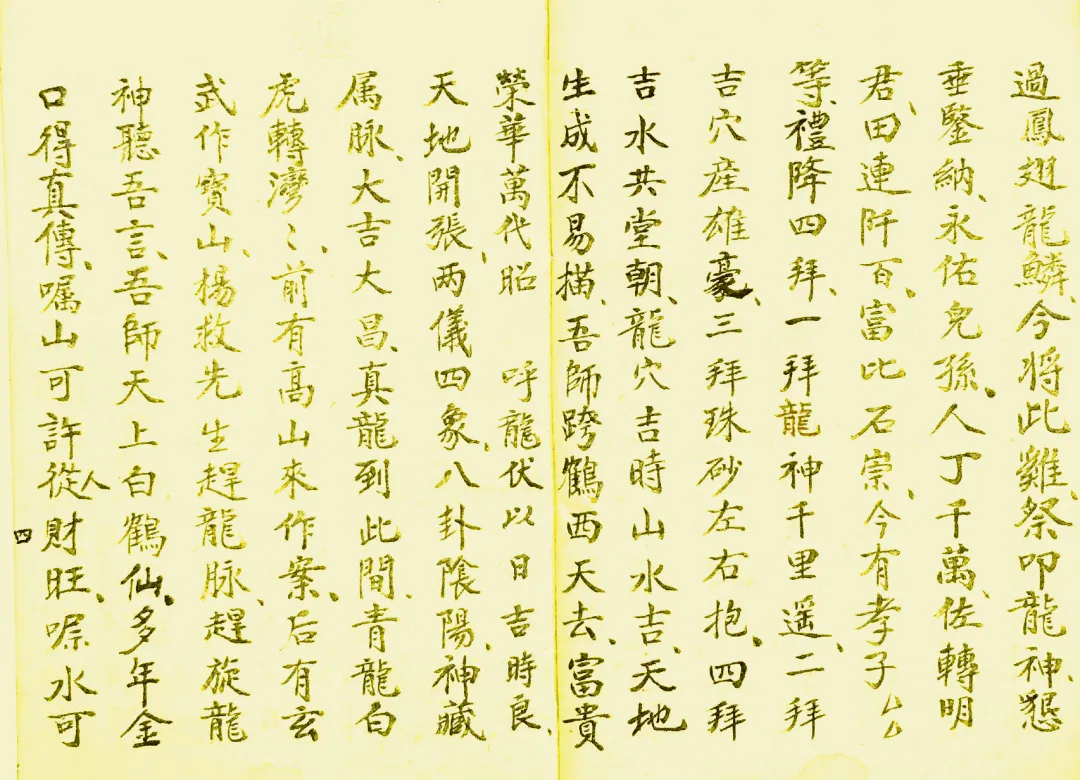 過鳳翅龍鱗、今將此雞祭叩龍神、懇
垂鑒納、永佑兒孫、人丁千萬、佐轉明
君、田連阡百、富比石崇、今有孝子厶厶
等、禮降四拜、一拜龍神千里遥、二拜
吉穴産雄豪、三拜珠砂左右抱、四拜
吉水共堂朝、龍穴吉時山水吉、天地
生成不易描、吾師跨鶴西天去、富貴
榮華萬代昭　呼龍伏以日吉時良、
天地開張、两儀四象、八卦陰陽、神藏
属脉、大吉大昌、真龍到此間、青龍白
虎轉灣〻、前有高山來作案、后有玄
武作寶山、楊救先生趕龍脉、趕旋龍
神聽吾言、吾師天上白鶴仙、多年金
口得真傳、嘱山可許從人財旺、嘱水可
四